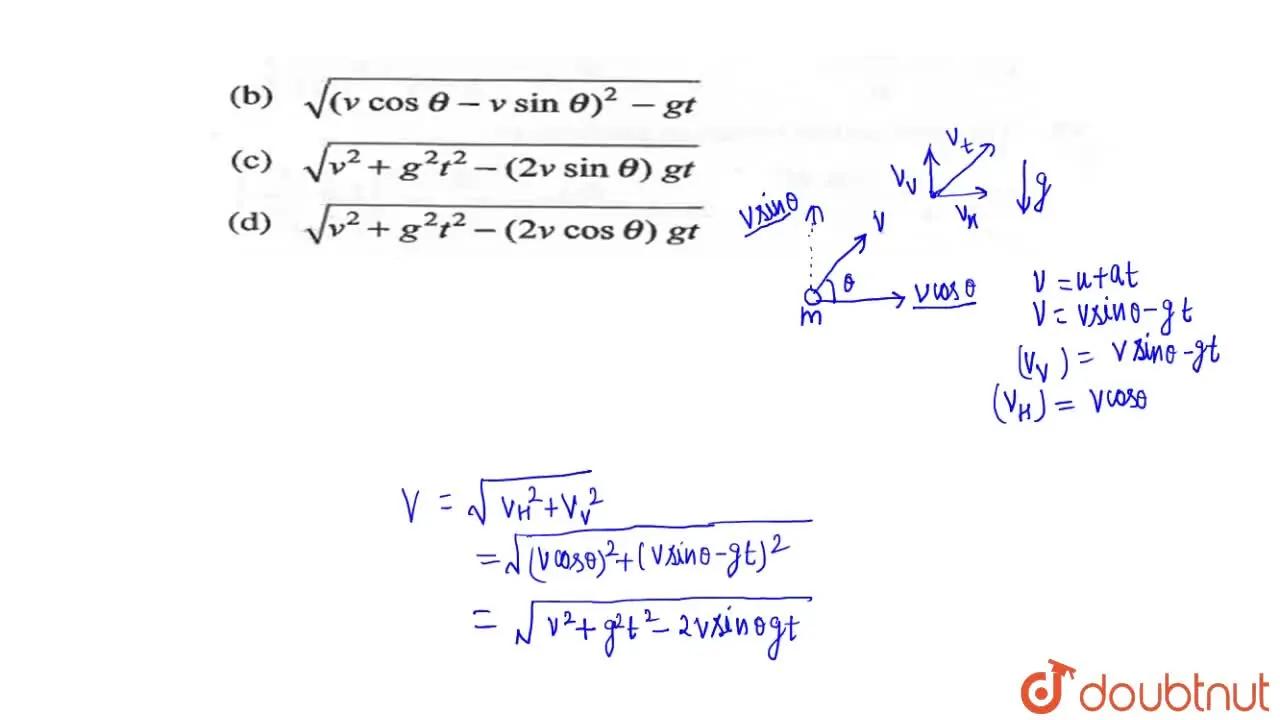 (b) √(v cos θ – v sin θ)² – gt
(c) √v² + g²t² – (2v sin θ) gt
(d) √v² + g²t² – (2v cos θ) gt
Vt
Vv
Vx
g
vsinθ
v
θ
vcosθ
m
V = u+at
V = vsinθ-gt
(Vv) = vsinθ-gt
(VH) = vcosθ
V = √VH²+Vv²
= √(vcosθ)²+(vsinθ-gt)²
= √v²+g²t²-2vsinθgt
doubtnut